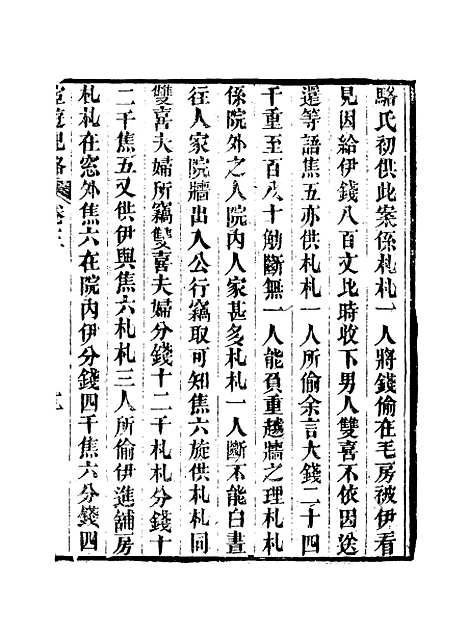 駱氏初供此案係札札一人將錢偷在毛房被伊看
見因給伊錢八百文比時收下男人雙喜不依因送
還等語焦五亦供札札一人所偷余言大錢二十四
千重至百八十觔斷無一人能負重越牆之理札札
係院外之人院內人家甚多札札一人斷不能白晝
往人家院牆出入公行竊取可知焦六旋供札札同
雙喜夫婦所竊雙喜夫婦分錢十二千札札分錢十
二千焦五又供伊與焦六札札三人所偷伊進舖房
札札在窓外焦六在院內伊分錢四千焦六分錢四
宦遊紀略 卷三